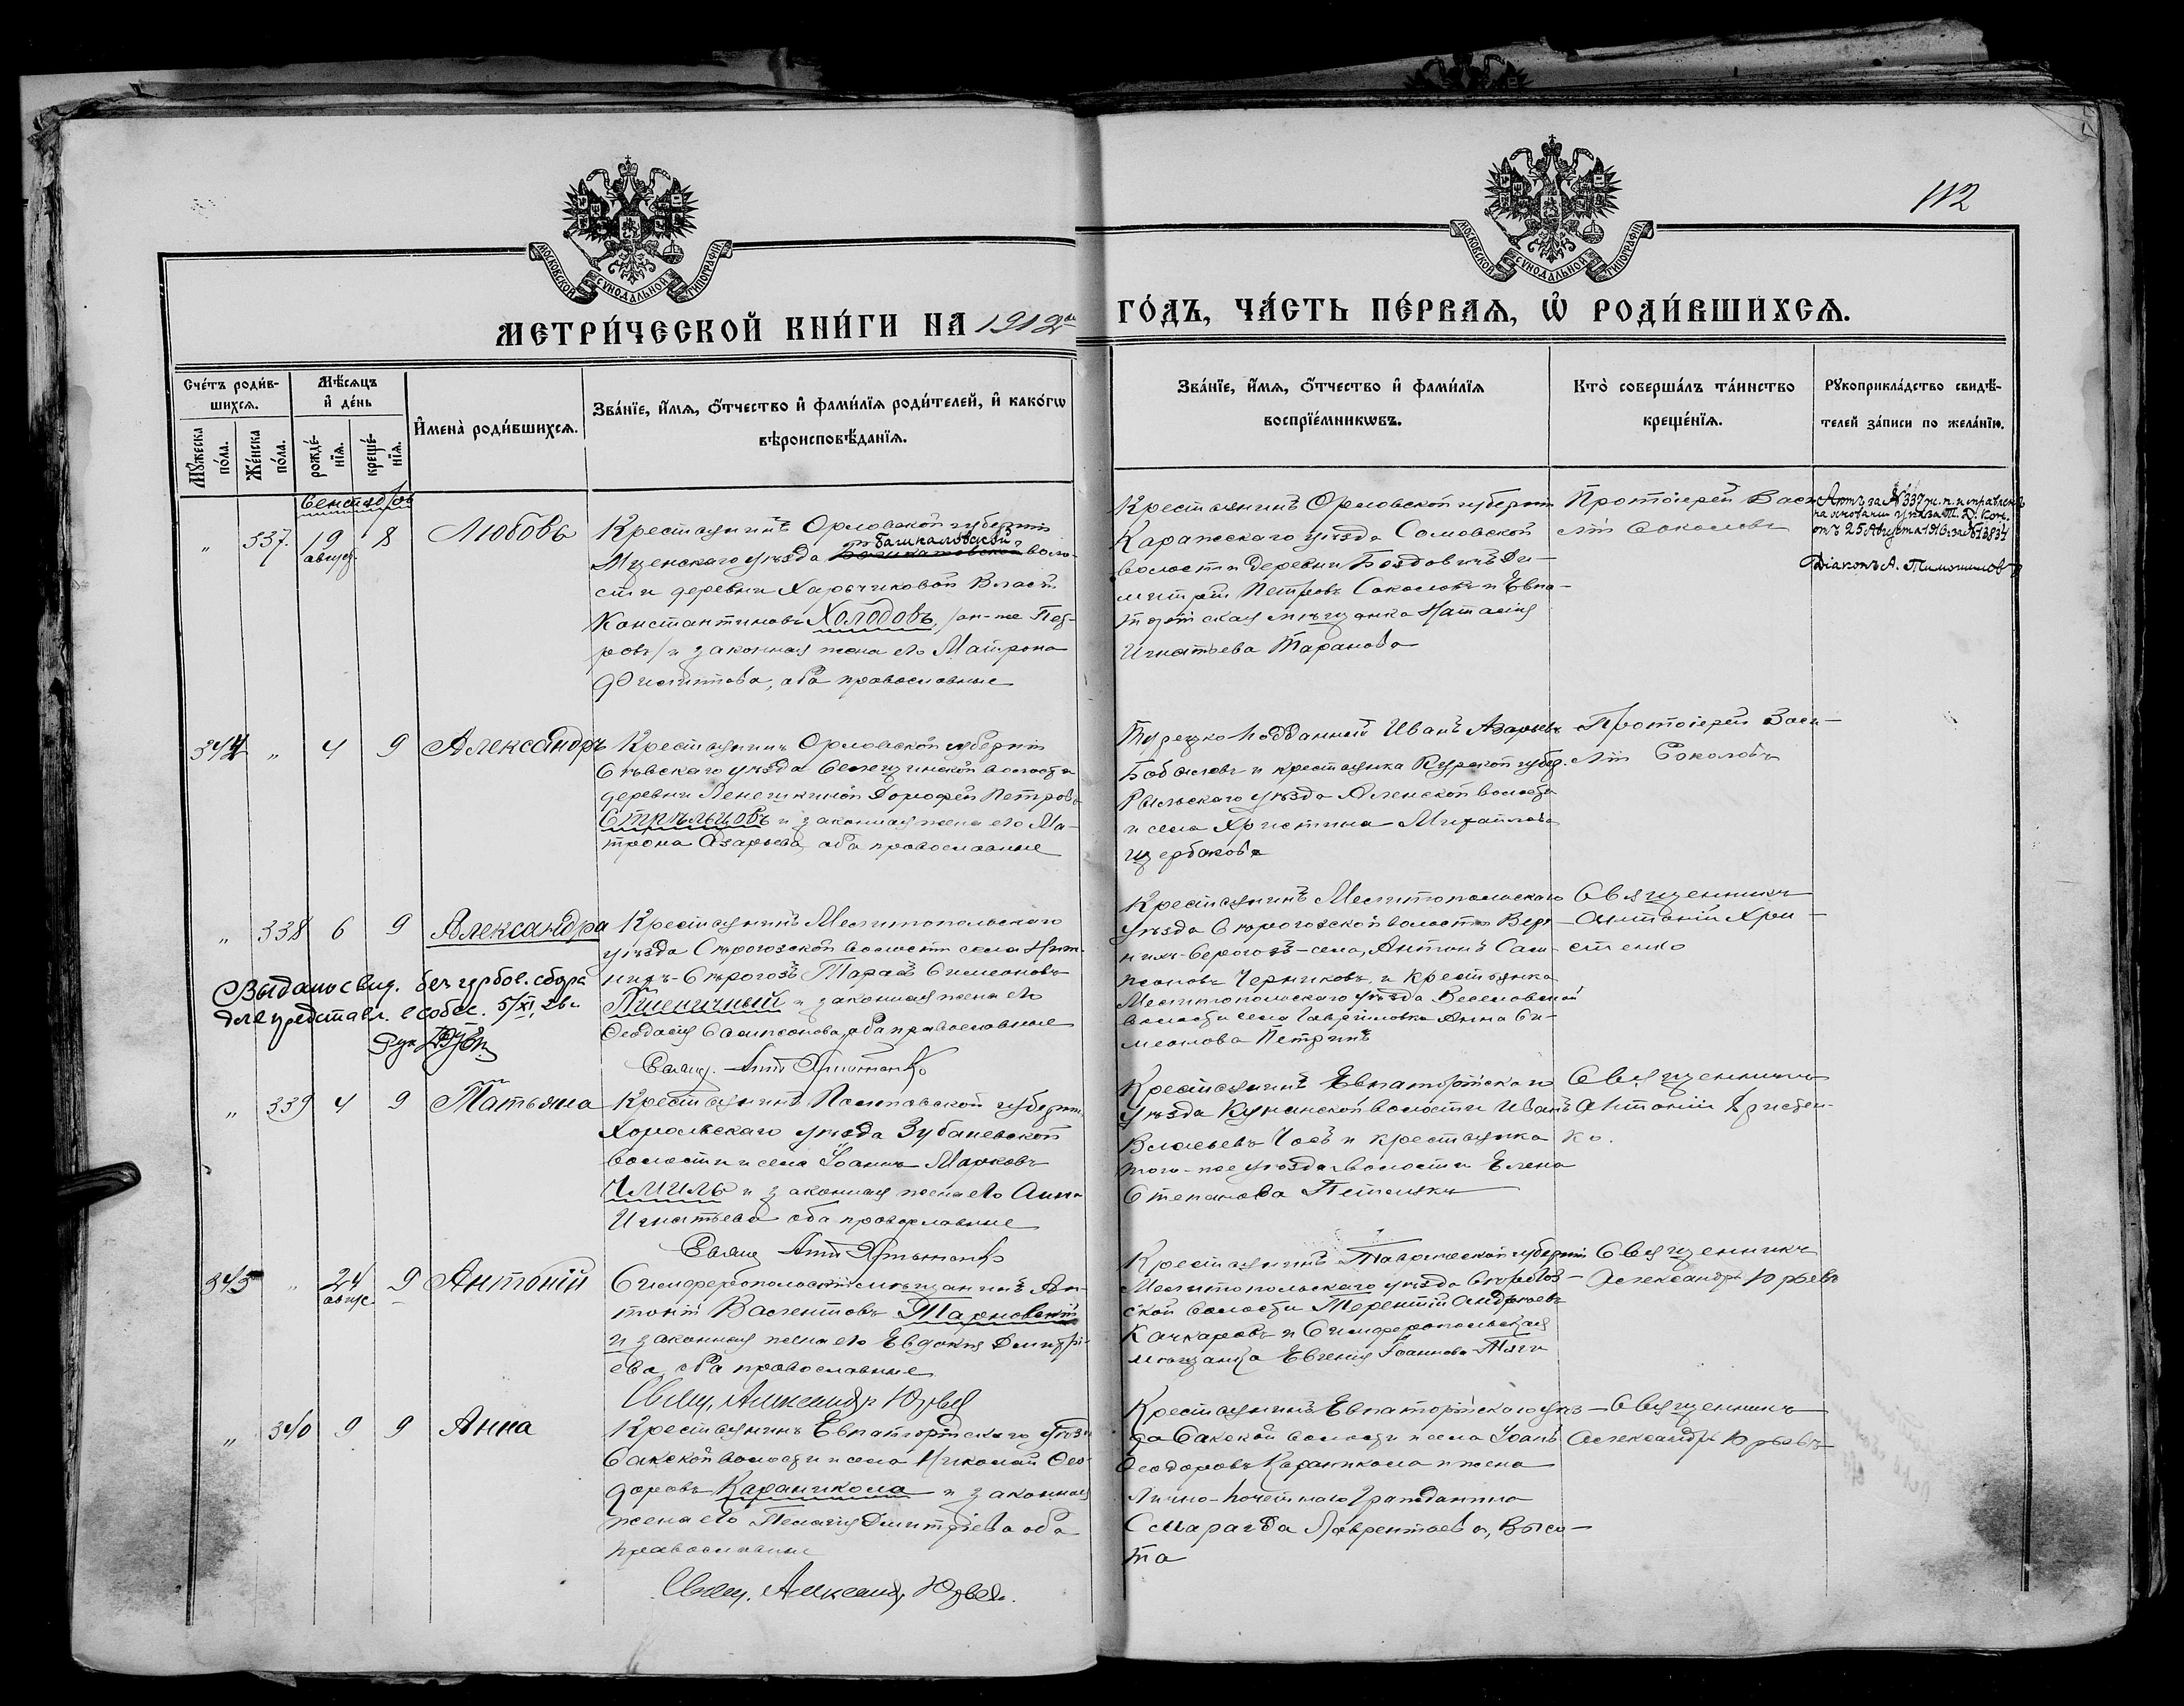 112
МОСКОВСКОЙ СѴНОДАЛЬНОЙ ТИПОГРАФІИ
МОСКОВСКОЙ СѴНОДАЛЬНОЙ ТИПОГРАФІИ
МЕТРИ́ЧЕСКОЙ КНИ́ГИ НА 1912й ГО́ДЪ, ЧА́СТЬ ПЕ́РВАѦ, Ѡ҆ РОДИ́ВШИХСѦ.
Сче́тъ роди́в-
шихсѧ.
Мꙋ́жеска по́ла.
Же́нска по́ла.
Мѣ́сѧцъ
и҆ де́нь
рожде́-
нїѧ.
креще́-
нїѧ.
И҆мена̀ роди́вшихсѧ.
Зва́нїе, и҆́мѧ, ѻ҆́тчество и҆ фами́лїѧ роди́телей, и҆ како́гѡ
вѣроисповѣ́данїѧ.
Зва́нїе, и҆́мѧ, ѻ҆́тчество и҆ фами́лїѧ
воспрїе́мникѡвъ.
Кто̀ соверша́лъ та́инство
креще́нїѧ.
Рꙋкоприкла́дство свидѣ́-
телей за́писи по жела́нїю.
Сентябрь
" 337. 19 8 Любовь
август
Крестьянинъ Орловской губерніи
Мценскаго уѣзда Башкатовской воло-
сти деревни Харьчиковой Власъ
Константиновъ Холодовъ, /он-же Пет-
ровъ/ и законная жена его Матрона
Филиппова, оба православные
Крестьянинъ Орловской губерніи
Карачевскаго уѣзда Сомовской
волости деревни Дм-
итрій Петровъ Соколовъ и Евпа-
торійская мѣщанка Наталія
Игнатьева Таранова
Протоіерей Васи-
лій Соколовъ
Актъ за №337 ж. п. исправленъ
на основаніи указа Т. Д. Кон.
отъ 25 Августа 1916 за № 13834
Діаконъ А. Тимошиловъ
344 " 4 9 Александръ
Крестьянинъ Орловской губерніи
Сѣвскаго уѣзда волости
деревни Дорофей Петровъ
Стрѣльцовъ и законная жена его Ма-
трона Азарьева, оба православные
Турецко-подданный Иванъ Азарьевъ
и крестьянка Курской губ.
Рыльскаго уѣзда волости
и села Христина Михайлова
Щербакова
Протоіерей Васи-
лій Соколовъ
" 338 6 9 Александра
Крестьянинъ Мелитопольскаго
уѣзда Сѣрогозской волости села Ниж-
нихъ-Сѣрогозъ Тарасъ Симеоновъ
Пшеничный и законная жена его
Ѳеодосія Сампсонова, оба православные
Свящ. Ант. Христенко
Выдано свид. без гербов. сбора
для представл. в собес. 5/XI, 26 г
Крестьянинъ Мелитопольскаго
уѣзда Сѣрогозской волости Верх-
нихъ-Сѣрогозъ села, Антонъ Сам-
псоновъ Черниковъ, и крестьянка
Мелитопольскаго уѣзда Веселовской
волости села Гавриловка Анна Си-
меонова Петринъ
Священникъ
Антоній Хри-
стенко
" 339 4 9 Татьяна
Крестьянинъ Полтавской губерніи
Хорольскаго уѣзда Зубаневской
волости и села Іоаннъ Марковъ
Чмиль и законная жена его Анна
Игнатьева оба православные
Свящ. Ант. Христенко
Крестьянинъ Евпаторійскаго
уѣзда волости Иванъ
и крестьянка
того-же уѣзда и волости Елена
Степанова
Священникъ
Антоній Христен-
ко.
345 " 24 9 Антоній
август
Симферопольскій мѣщанинъ Ан-
тоній Тарновскій
и законная жена его Евдокія Димитрі-
ева, оба православные
Свящ. Александръ Юрьевъ
Крестьянинъ Таврической губерніи
Мелитопольскаго уѣзда Сѣрогоз-
ской волости Терентій Андреевъ
Качкаровъ и Симферопольская
мѣщанка Евгенія Іоаннова
Священникъ
Александръ Юрьевъ
" 340 9 9 Анна
Крестьянинъ Евпаторійскаго уѣзда
Сакской волости и села Николай Ѳео-
доровъ Караникола и законная
жена его Пелагія Димитріева оба
православные
Свящ. Александ. Юрьевъ.
Крестьянинъ Евпаторійскаго уѣз-
да Сакской волости и села Іоаннъ
Ѳеодоровъ Караникола и жена
Лично-почетнаго гражданина
Смарагда Лаврентьева, Высо-
та
Священникъ
Александръ Юрьевъ